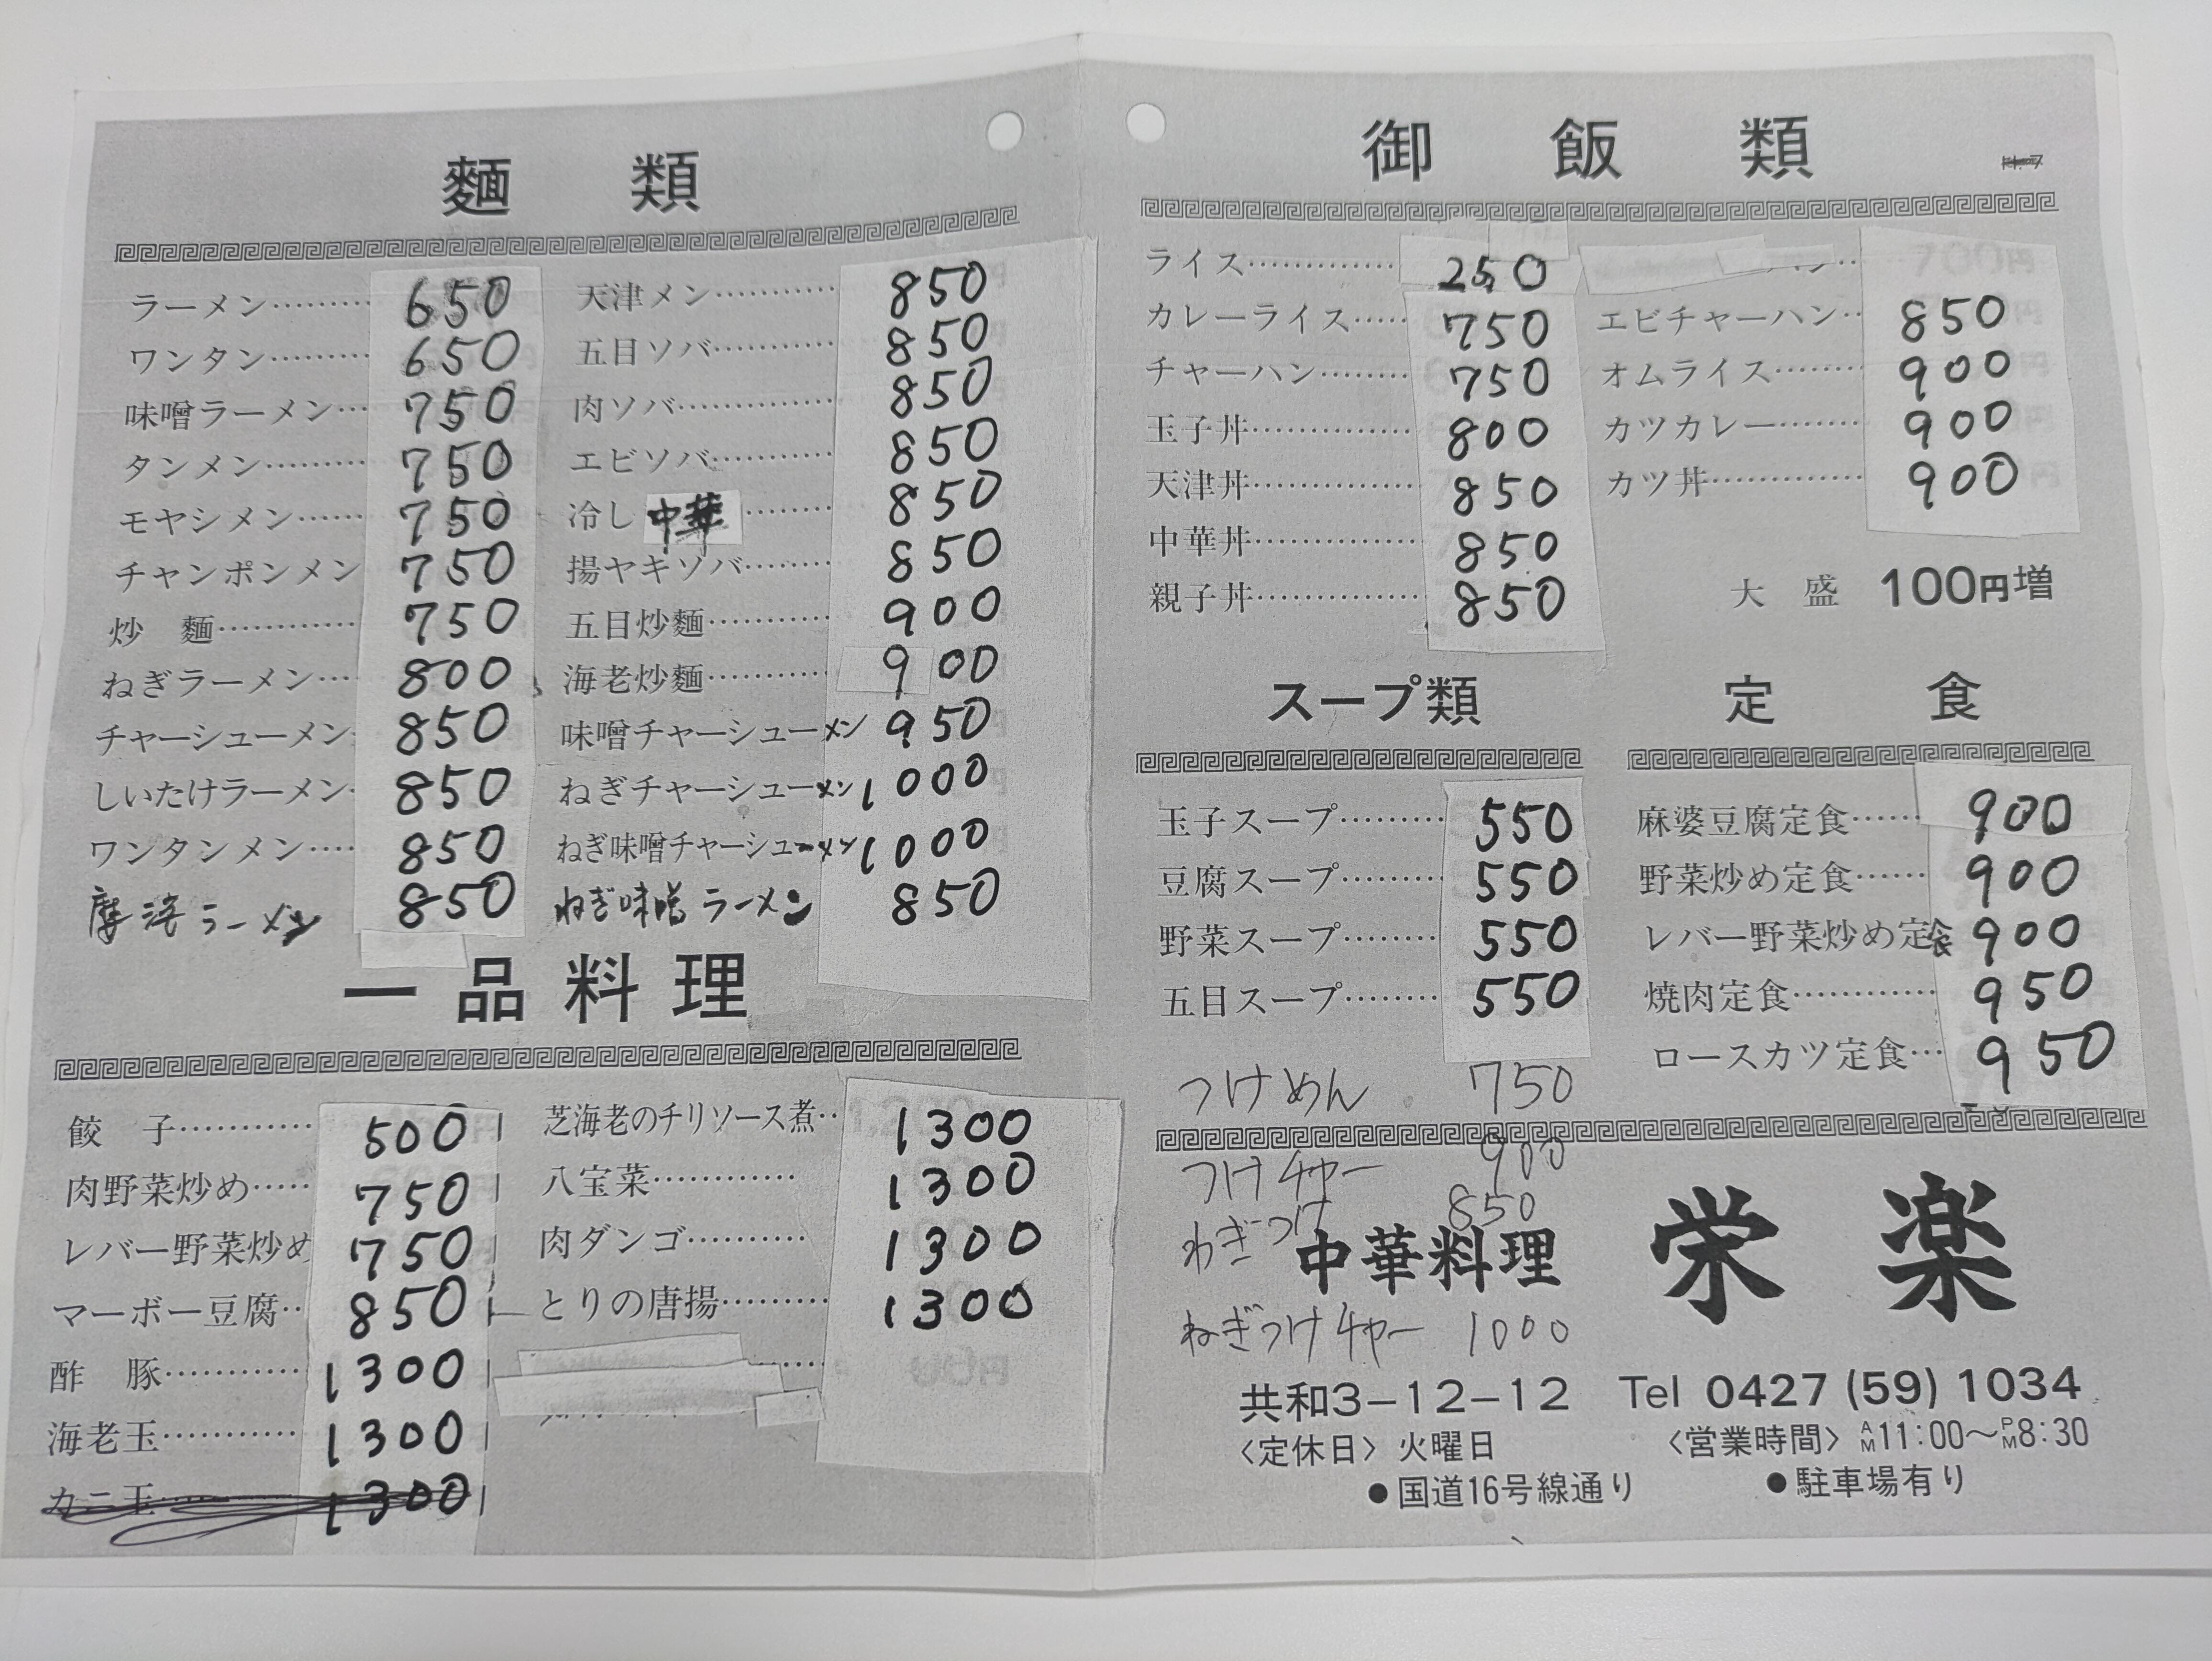 麵類
ラーメン…………650
ワンタン…………650
味噌ラーメン…750
タンメン…………750
モヤシメン……750
チャンポンメン 750
炒 麵…………750
ねぎラーメン…800
チャーシューメン 850
しいたけラーメン 850
ワンタンメン…850
ラーメン 850
天津メン…………850
五目ソバ…………850
肉ソバ……………850
エビソバ…………850
冷し中華………850
揚ヤキソバ………850
五目炒麵…………900
海老炒麵…………900
味噌チャーシューメン 950
ねぎチャーシューメン 1000
ねぎ味噌チャーシューメン 1000
ねぎ味噌ラーメン 850
一品料理
餃 子…………500
肉野菜炒め……750
レバー野菜炒め 750
マーボー豆腐…850
酢 豚…………1300
海老玉…………1300
カニ玉……1300
芝海老のチリソース煮…1300
八宝菜…………1300
肉ダンゴ…………1300
とりの唐揚………1300
御飯類
ライス……………250
カレーライス……750
チャーハン………750
玉子丼……………800
天津丼……………850
中華丼……………850
親子丼……………850
エビチャーハン…850
オムライス………900
カツカレー………900
カツ丼……………900
大盛 100円増
スープ類
玉子スープ………550
豆腐スープ………550
野菜スープ………550
五目スープ………550
つけめん 750
つけチャー 900
ねぎつけ 850
ねぎつけチャー 1000
定食
麻婆豆腐定食……900
野菜炒め定食……900
レバー野菜炒め定食 900
焼肉定食…………950
ロースカツ定食…950
中華料理 栄楽
共和3−12−12 Tel 0427 (59) 1034
〈定休日〉火曜日 〈営業時間〉AM11:00〜PM8:30
●国道16号線通り ●駐車場有り